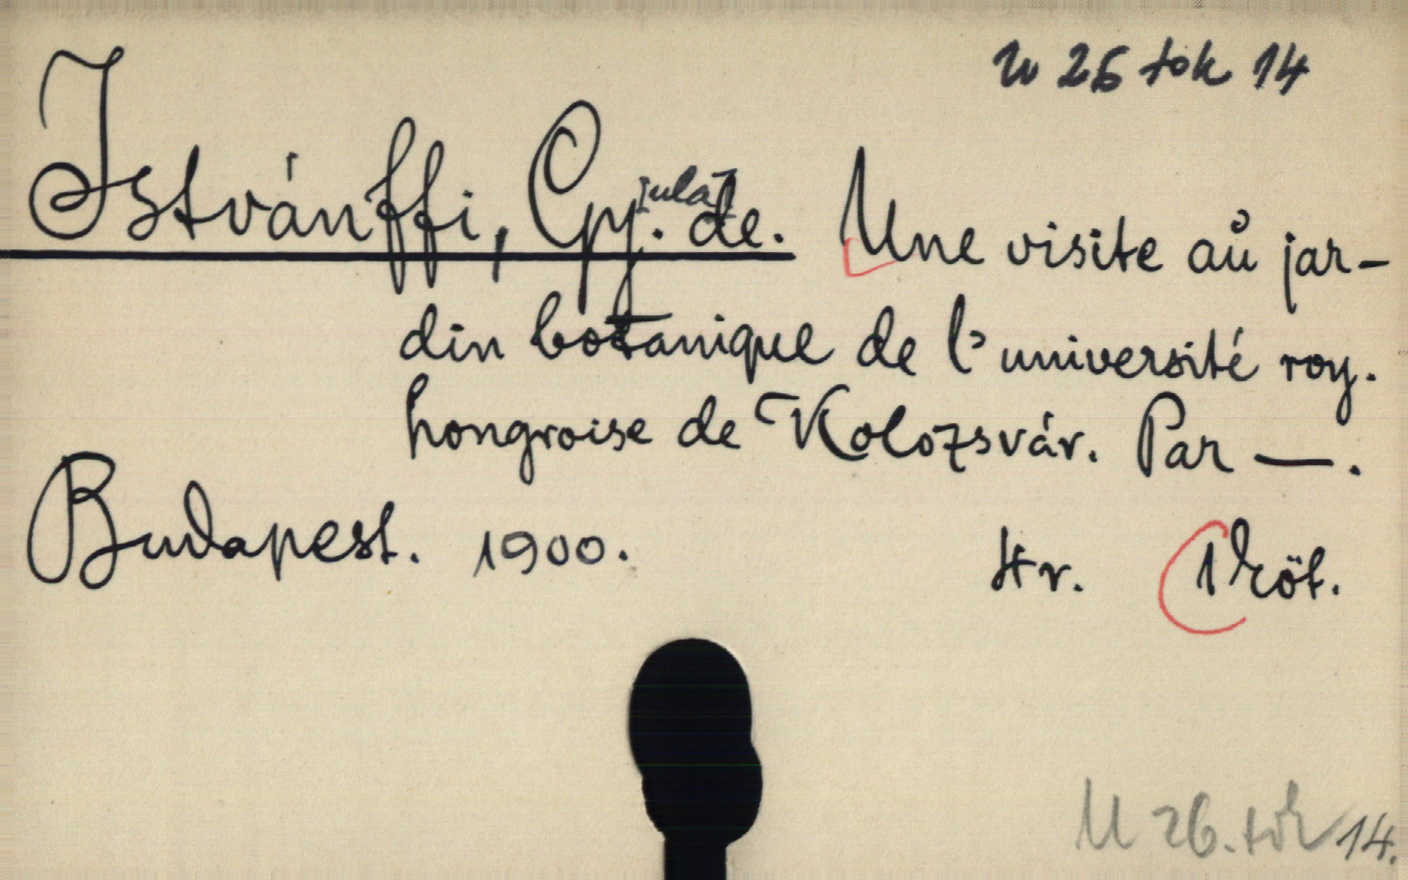 U 26 tok 14
Istvánffi, Gy[ula]. de. Une visite au jar-
din botanique de l'université roy.
hongroise de Kolozsvár. Par —.
Budapest. 1900. 4r. 1 köt.
U 26. tok 14.